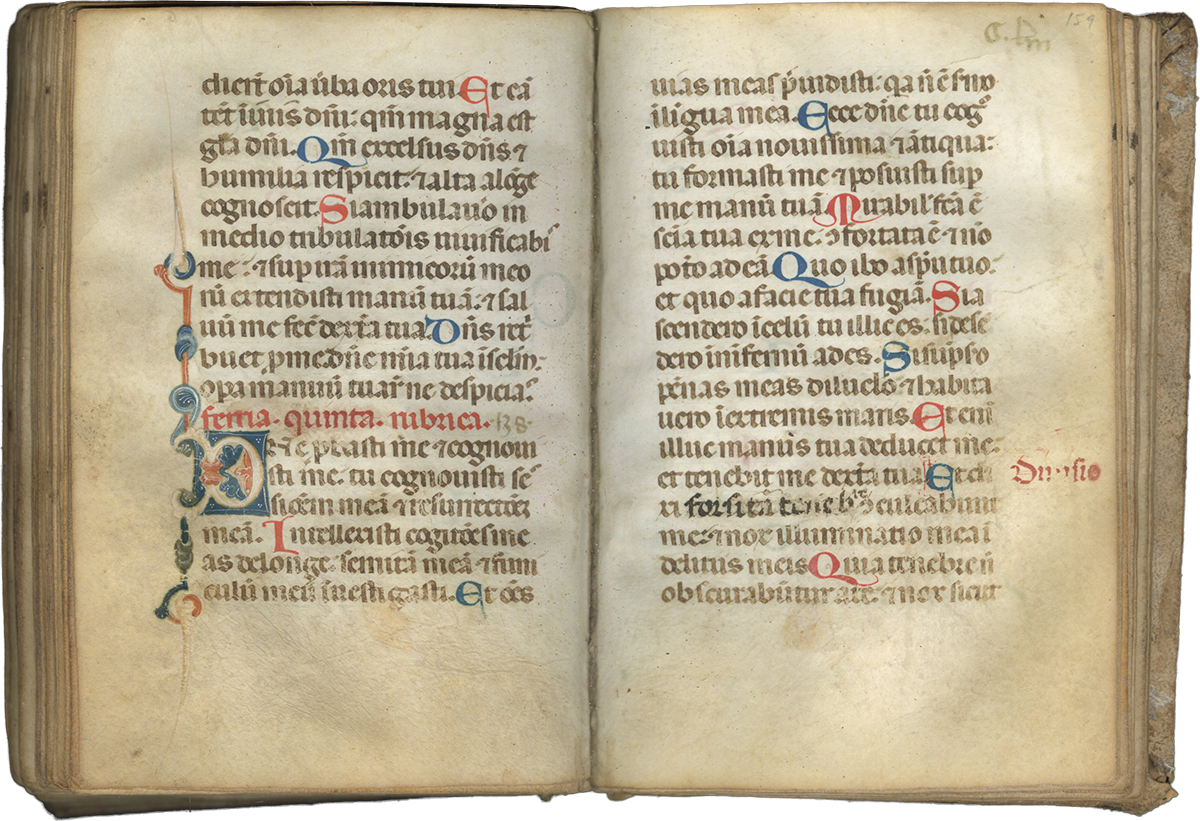 dierūt oīa ūba oris tui Et cā
tēt ī uiīs dn̄i: qm̄ magna est
gl̄a dn̄i. Qm̄ excelsus dn̄s ⁊
humilia respicit: ⁊ alta alōge
cognoscit. Si ambulauo in
medio tribulatōis uiuificabi
me: ⁊ sup irā inimicorū meo
rū extendisti manū tuā: ⁊ sal
uū me fec̄ dext̄a tua. Dn̄s ret̄
buet p me. dn̄e mīa tua ī sclm̄:
opa manuū tuaꝝ ne despicias
feria. quinta. rubrica. 138
Dn̄e pbasti me ⁊ cognoui
sti me. tu cognouisti se
sionem meā ⁊ resurrectōez
meā. Intellexisti cogitōes me
as de longe. semitā meā ⁊ funi
culū meū īuestigasti. Et oēs
C.liii
159
uias meas p̄uidisti: qa n̄ ē s̄mo
ī ligua mea. Ecce dn̄e tu cog
uisti oīa nouissima ⁊ ātiqua:
tu formasti me ⁊ posuisti sup
me manū tuā. Mirabil̄ fc̄a ē
sciā tua ex me. ɔfortata ē ⁊ nō
poto ad eā Quo ibo a sp̄u tuo.
et quo a facie tua fugiā. Si a
scendero ī celū tu illic es: si desē
dero in īfernū ades. Si sūpso
pēnas meas diluclo ⁊ habita
uero ī extremis maris. Et eni
illuc manus tua deducet me:
et tenebit me dext̄a tua Et di
xi forsitā tenebre ɔculcabunt
me: ⁊ nox illuminatio mea ī
delitiis meis Quia tenebre n̄
obscurabūtur a te. ⁊ nox sicut
Diuisio